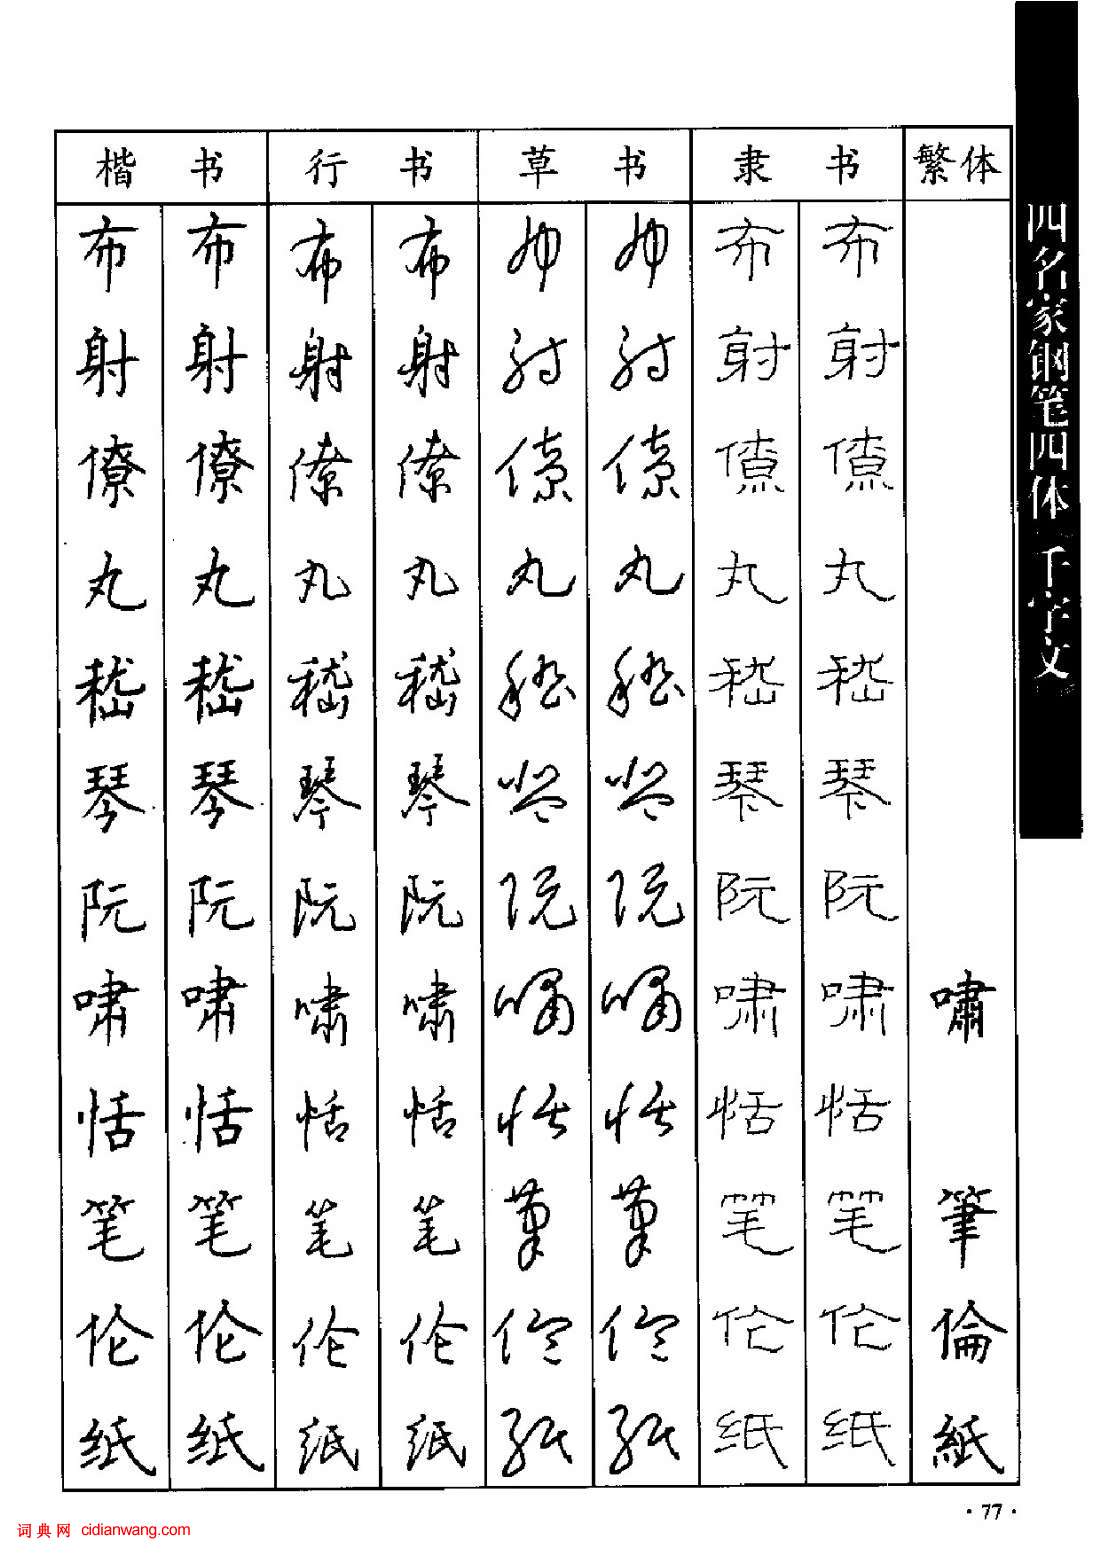 楷书 行书 草书 隶书 繁体
布 布 布 布 布 布 布 布
射 射 射 射 射 射 射 射
僚 僚 僚 僚 僚 僚 僚 僚
丸 丸 丸 丸 丸 丸 丸 丸
嵇 嵇 嵇 嵇 嵇 嵇 嵇 嵇
琴 琴 琴 琴 琴 琴 琴 琴
阮 阮 阮 阮 阮 阮 阮 阮
啸 啸 啸 啸 啸 啸 啸 啸 嘯
恬 恬 恬 恬 恬 恬 恬 恬
笔 笔 笔 笔 筆 筆 笔 笔 筆
伦 伦 伦 伦 伦 伦 伦 伦 倫
纸 纸 纸 纸 纸 纸 纸 纸 紙
四名家钢笔四体 千字文
·77·
词典网 cidianwang.com